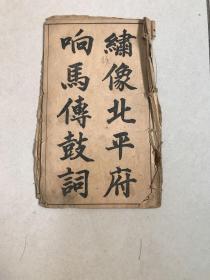 繡像北平府
响馬傳鼓詞